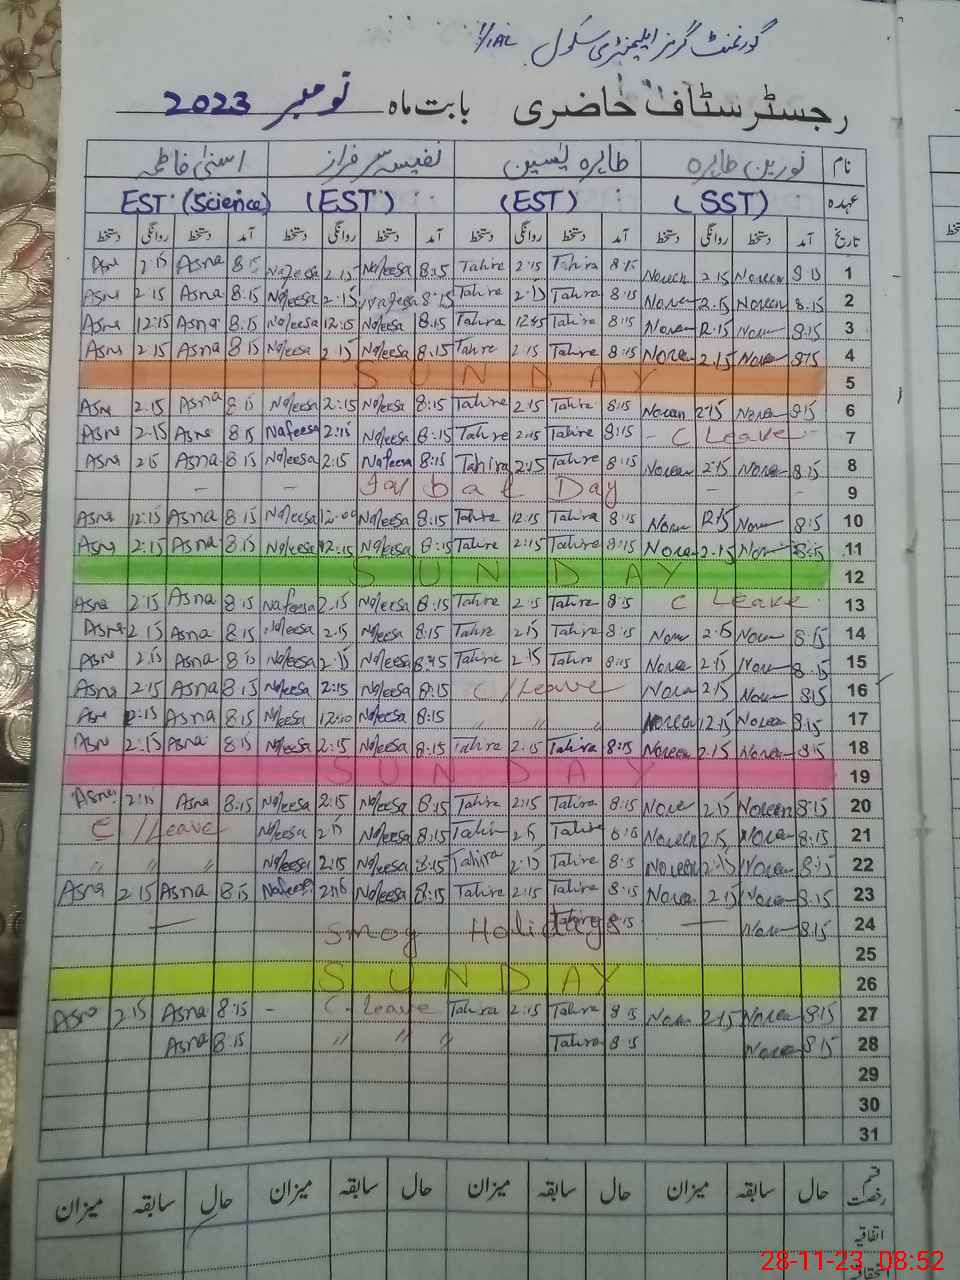 گورنمنٹ گرلز ایلیمنٹری سکول 1/1AL
رجسٹر سٹاف حاضری بابت ماہ نومبر 2023
نام نورین طاہرہ طاہرہ یسین نفیسہ سرفراز اسنیٰ فاطمہ
عہدہ (SST) (EST) (EST) EST (Science)
تاریخ آمد دستخط روانگی دستخط آمد دستخط روانگی دستخط آمد دستخط روانگی دستخط آمد دستخط روانگی دستخط
1 8:15 Noreen 2.15 Noreen 8:15 Tahira 2:15 Tahire 8:15 Nafeesa 2.15 Nafeesa 8:15 Asna 2:15 Asna
2 8.15 Noreen 2.15 Noreen 8:15 Tahira 2:15 Tahira 8:15 Nafeesa 2:15 Nafeesa 8:15 Asna 2:15 Asna
3 8:15 Noreen 12:15 Noreen 8:15 Tahire 12:45 Tahira 8:15 Nafeesa 12:15 Nafeesa 8:15 Asna 12:15 Asna
4 8:15 Noreen 2.15 Noreen 8:15 Tahire 2:15 Tahire 8:15 Nafeesa 2:15 Nafeesa 8:15 Asna 2:15 Asna
5 SUNDAY
6 8:15 Noreen 2:15 Noreen 8:15 Tahire 2:15 Tahire 8:15 Nafeesa 2:15 Nafeesa 8:15 Asna 2:15 Asna
7 - C Leave - 8:15 Tahire 2:15 Tahire 8:15 Nafeesa 2:15 Nafeesa 8:15 Asna 2:15 Asna
8 8.15 Noreen 2:15 Noreen 8:15 Tahire 2:15 Tahira 8:15 Nafeesa 2:15 Nafeesa 8:15 Asna 2:15 Asna
9 - - Iqbal Day - -
10 8:15 Noreen 12:15 Noreen 8:15 Tahire 12:15 Tahira 8:15 Nafeesa 12:00 Nafeesa 8:15 Asna 12:15 Asna
11 8:15 Noreen 2.15 Noreen 8:15 Tahire 2:15 Tahire 8:15 Nafeesa 2:15 Nafeesa 8:15 Asna 2:15 Asna
12 SUNDAY
13 C Leave 8:15 Tahire 2:15 Tahire 8:15 Nafeesa 2.15 Nafeesa 8:15 Asna 2:15 Asna
14 8:15 Noreen 2:15 Noreen 8:15 Tahire 2:15 Tahire 8:15 Nafeesa 2:15 Nafeesa 8:15 Asna 2:15 Asna
15 8:15 Noreen 2:15 Noreen 8:15 Tahira 2:15 Tahire 8:15 Nafeesa 2:15 Nafeesa 8:15 Asna 2:15 Asna
16 8:15 Noreen 2:15 Noreen C/Leave 8:15 Nafeesa 2:15 Nafeesa 8:15 Asna 2:15 Asna
17 8:15 Noreen 12.15 Noreen " " " 8:15 Nafeesa Nafeesa 8:15 Asna Asna
18 8:15 Noreen 2:15 Noreen 8:15 Tahira 2:15 Tahira 8:15 Nafeesa 2:15 Nafeesa 8:15 Asna 2:15 Asna
19 SUNDAY
20 8:15 Noreen 2:15 Noreen 8:15 Tahira 2:15 Tahira 8:15 Nafeesa 2:15 Nafeesa 8:15 Asna 2:15 Asna
21 8:15 Noreen 2:15 Noreen 8:15 Tahire 2:15 Tahira 8:15 Nafeesa 2:15 Nafeesa C/Leave
22 8:15 Noreen 2:15 Noreen 8:15 Tahire 2:15 Tahira 8:15 Nafeesa 2:15 Nafeesa " " "
23 8:15 Noreen 2:15 Noreen 8:15 Tahire 2:15 Tahire 8:15 Nafeesa Nafeesa 8:15 Asna 2:15 Asna
24 8:15 Noreen — 8:15 Tahire Smog Holidays —
25
26 SUNDAY
27 8:15 Noreen 2:15 Noreen 8:15 Tahira 2:15 Tahira C.Leave - 8:15 Asna 2:15 Asna
28 8:15 Noreen 8:15 Tahira " " " 8:15 Asna
29
30
31
قسم رخصت حال سابقہ میزان حال سابقہ میزان حال سابقہ میزان حال سابقہ میزان
اتفاقیہ
28-11-23 08:52